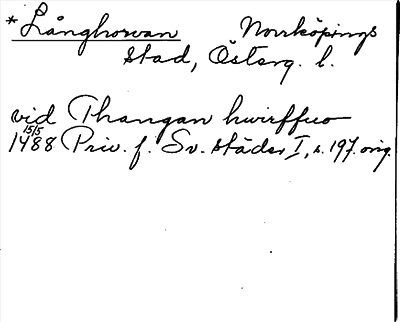 *Långhorvan Norrköpings
stad, Österg. l.
vid Thangan hwirffuo
15/5
1488 Priv. f. Sv. städer I, s. 197. orig.